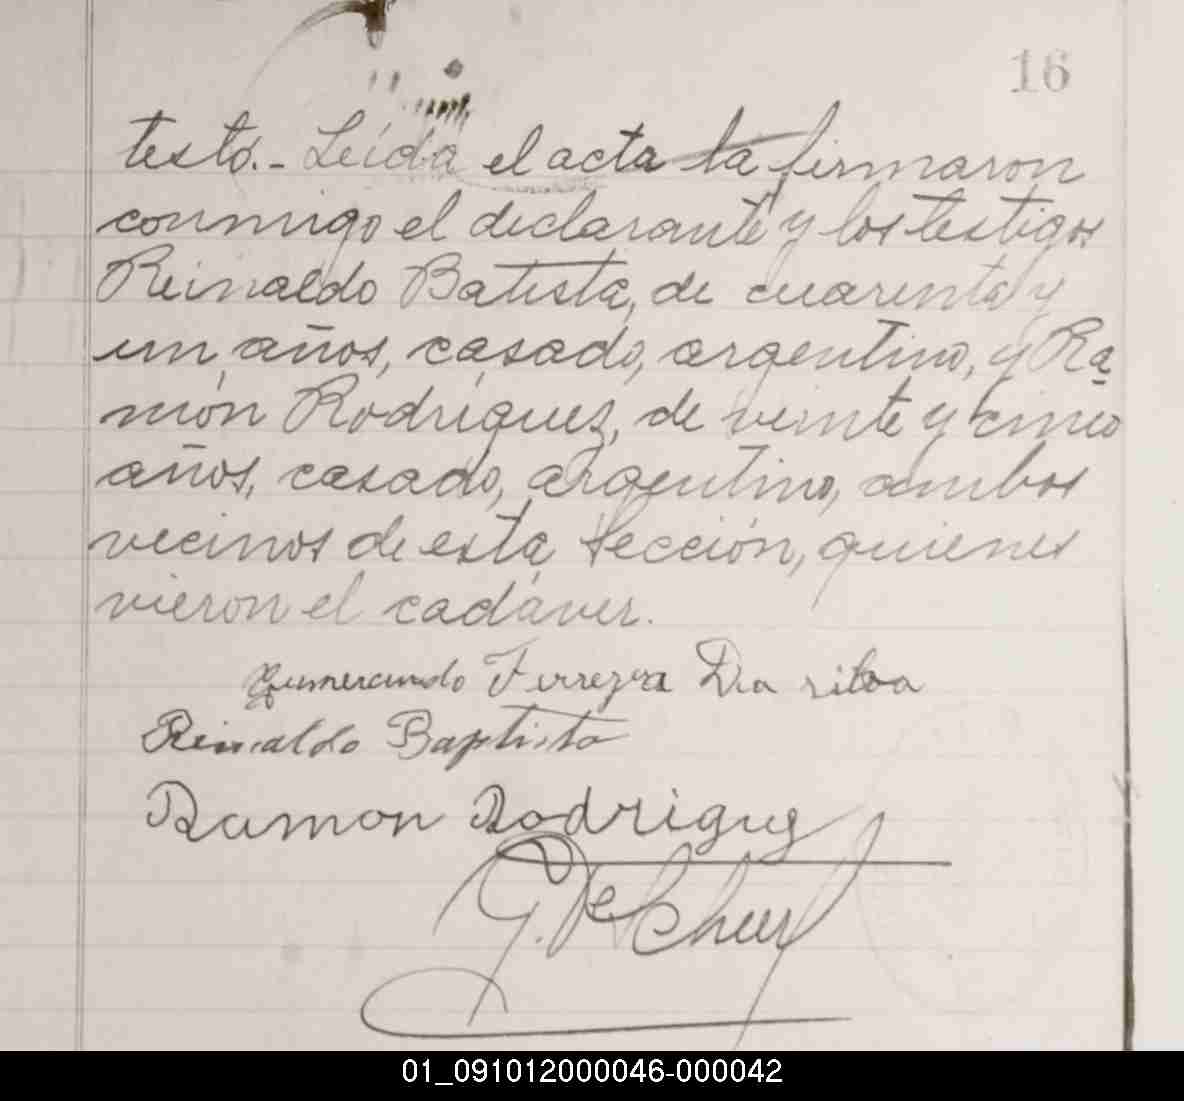 16
testó.- Leída el acta la firmaron
conmigo el declarante y los testigos
Reinaldo Batista, de cuarenta y
un años, casado, argentino, y Ra-
món Rodríguez, de veinte y cinco
años, casado, argentino, ambos
vecinos de esta Sección, quienes
vieron el cadáver.
Gumercindo Ferreyra Da silva
Reinaldo Baptista
Ramon Rodriguez
01_091012000046-000042